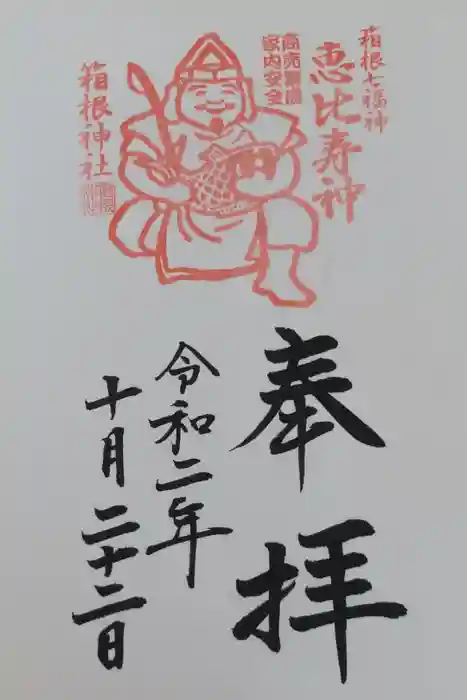 箱根七福神
恵比寿神
商売繁盛
家内安全
箱根神社
奉拝
令和二年
十月二十二日